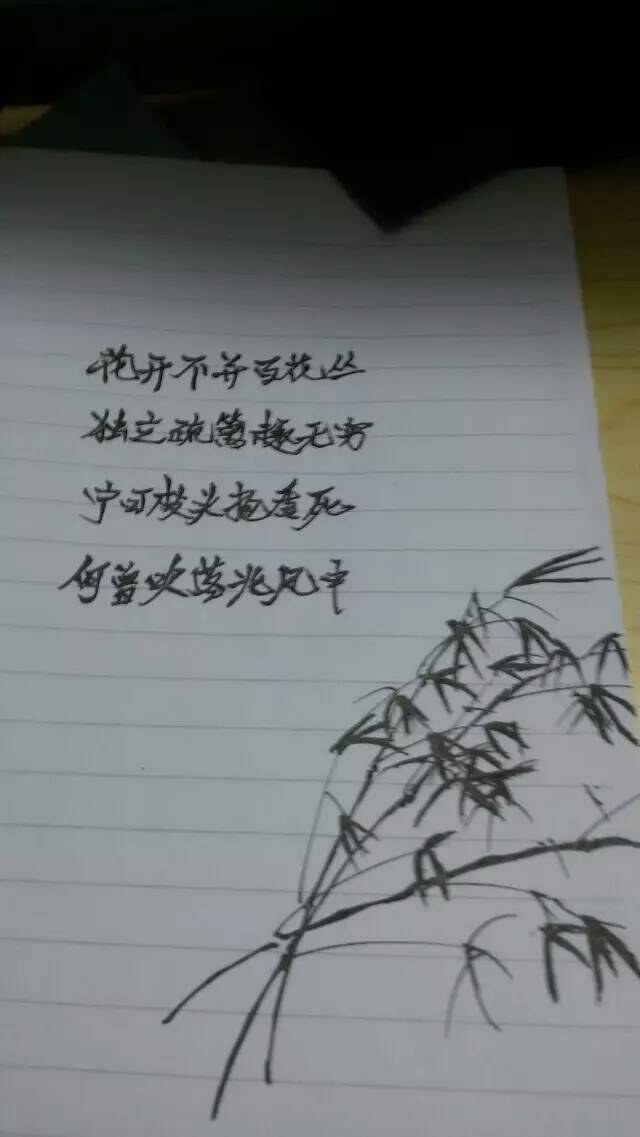 花开不并百花丛
独立疏篱趣无穷
宁可枝头抱香死
何曾吹落北风中